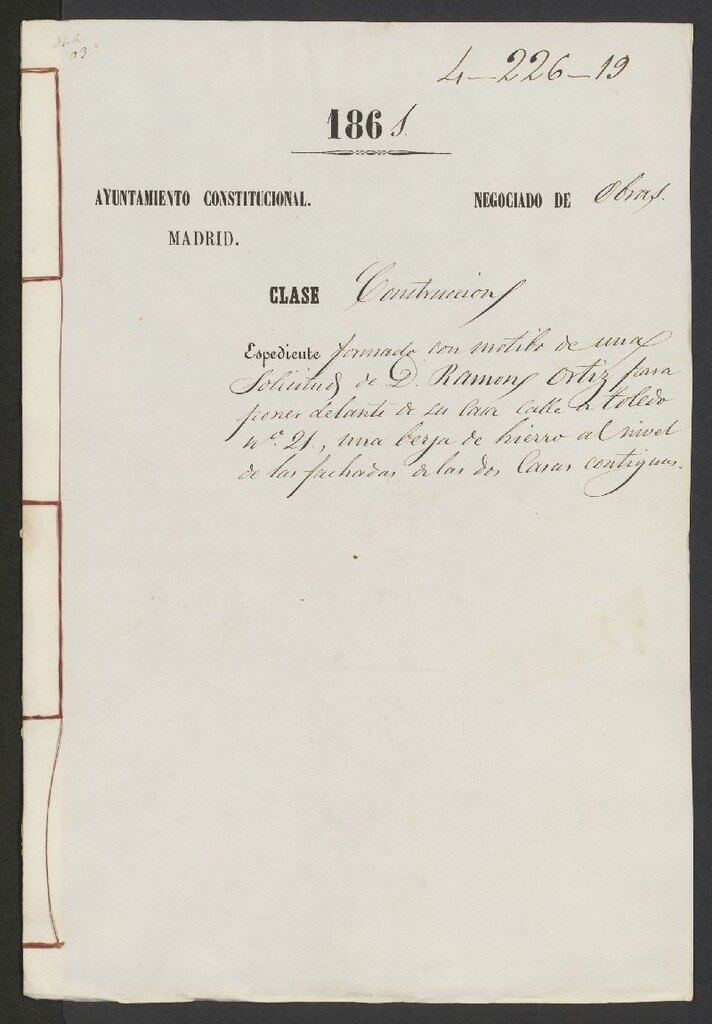 4-226-19
1861.
AYUNTAMIENTO CONSTITUCIONAL. NEGOCIADO DE Obras.
MADRID.
CLASE Construccion
Espediente formado con motibo de una
Solicitud de D. Ramon Ortiz para
poner delante de su casa calle de Toledo
nº. 21, una berja de hierro al nivel
de las fachadas de las dos Casas contiguas.